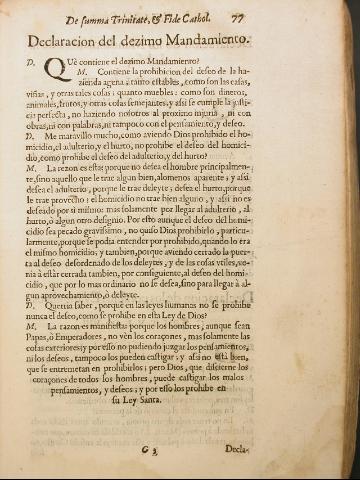 De summa Trinitate, & Fide Cathol. 77
Declaracion del dezimo Mandamiento.
D. QUè contiene el dezimo Mandamiento?
M. Contiene la prohibicion del deseo de la ha-
zienda agena; tanto estables, como son las casas,
viñas, y otras tales cosas; quanto muebles: como son dineros,
animales, frutos, y otras cosas semejantes, y assi se cumple la justi-
cia perfecta, no haziendo nosotros al proximo injuria, ni con
obras, ni con palabras, ni tampoco con el pensamiento, y deseo.
D. Me maravillo mucho, como aviendo Dios prohibido el ho-
micidio, el adulterio, y el hurto, no prohibe el deseo del homici-
dio, como prohibe el deseo del adulterio, y del hurto?
M. La razon es esta; porque no desea el hombre principalmen-
te, sino aquello que le trae algun bien, alomenos aparente; y assi
desea el adulterio, porque le trae deleyte; desea el hurto, porque
le trae provecho: el homicidio no trae bien alguno, y assi no es
deseado por si mismo: mas solamente por llegar al adulterio, al
hurto, ò algun otro designio. Por esto aunque el deseo del homi-
cidio sea pecado gravissimo, no quiso Dios prohibirlo, particu-
larmente, porque se podia entender por prohibido, quando lo era
el mismo homicidio; y tambien, porque aviendo cerrado la puer-
ta al deseo desordenado de los deleytes, y de las cosas vtiles, ve-
nia à estàr cerrada tambien, por consiguiente, al deseo del homi-
cidio, que por lo mas ordinario no se desea, sino para llegar à al-
gun aprovechamiento, ò deleyte.
D. Querria saber, porque en las leyes humanas no se prohibe
nunca el deseo, como se prohibe en esta Ley de Dios?
M. La razon es manifiesta: porque los hombres, aunque sean
Papas, ò Emperadores, no vèn los coraçones, mas solamente las
cosas exteriores; y por esso no pudiendo juzgar los pensamientos,
ni los deseos, tampoco los pueden castigar: y assi no està bien,
que se entremetan en prohibirlos: pero Dios, que discierne los
coraçones de todos los hombres, puede castigar los malos
pensamientos, y deseos; y por esso los prohibe en
su Ley Santa.
G 3 Decla-